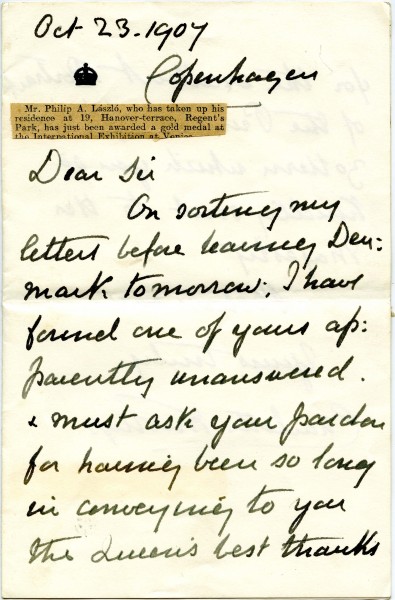 Oct 23. 1907
Copenhagen
Mr. Philip A. László, who has taken up his
residence at 19, Hanover-terrace, Regent's
Park, has just been awarded a gold medal at
the International Exhibition at Venice
Dear Sir
On sorting my
letters before leaving Den:
mark tomorrow, I have
found one of yours ap:
parently unanswered.
& must ask your pardon
for having been so long
in conveying to you
the Queen's best thanks